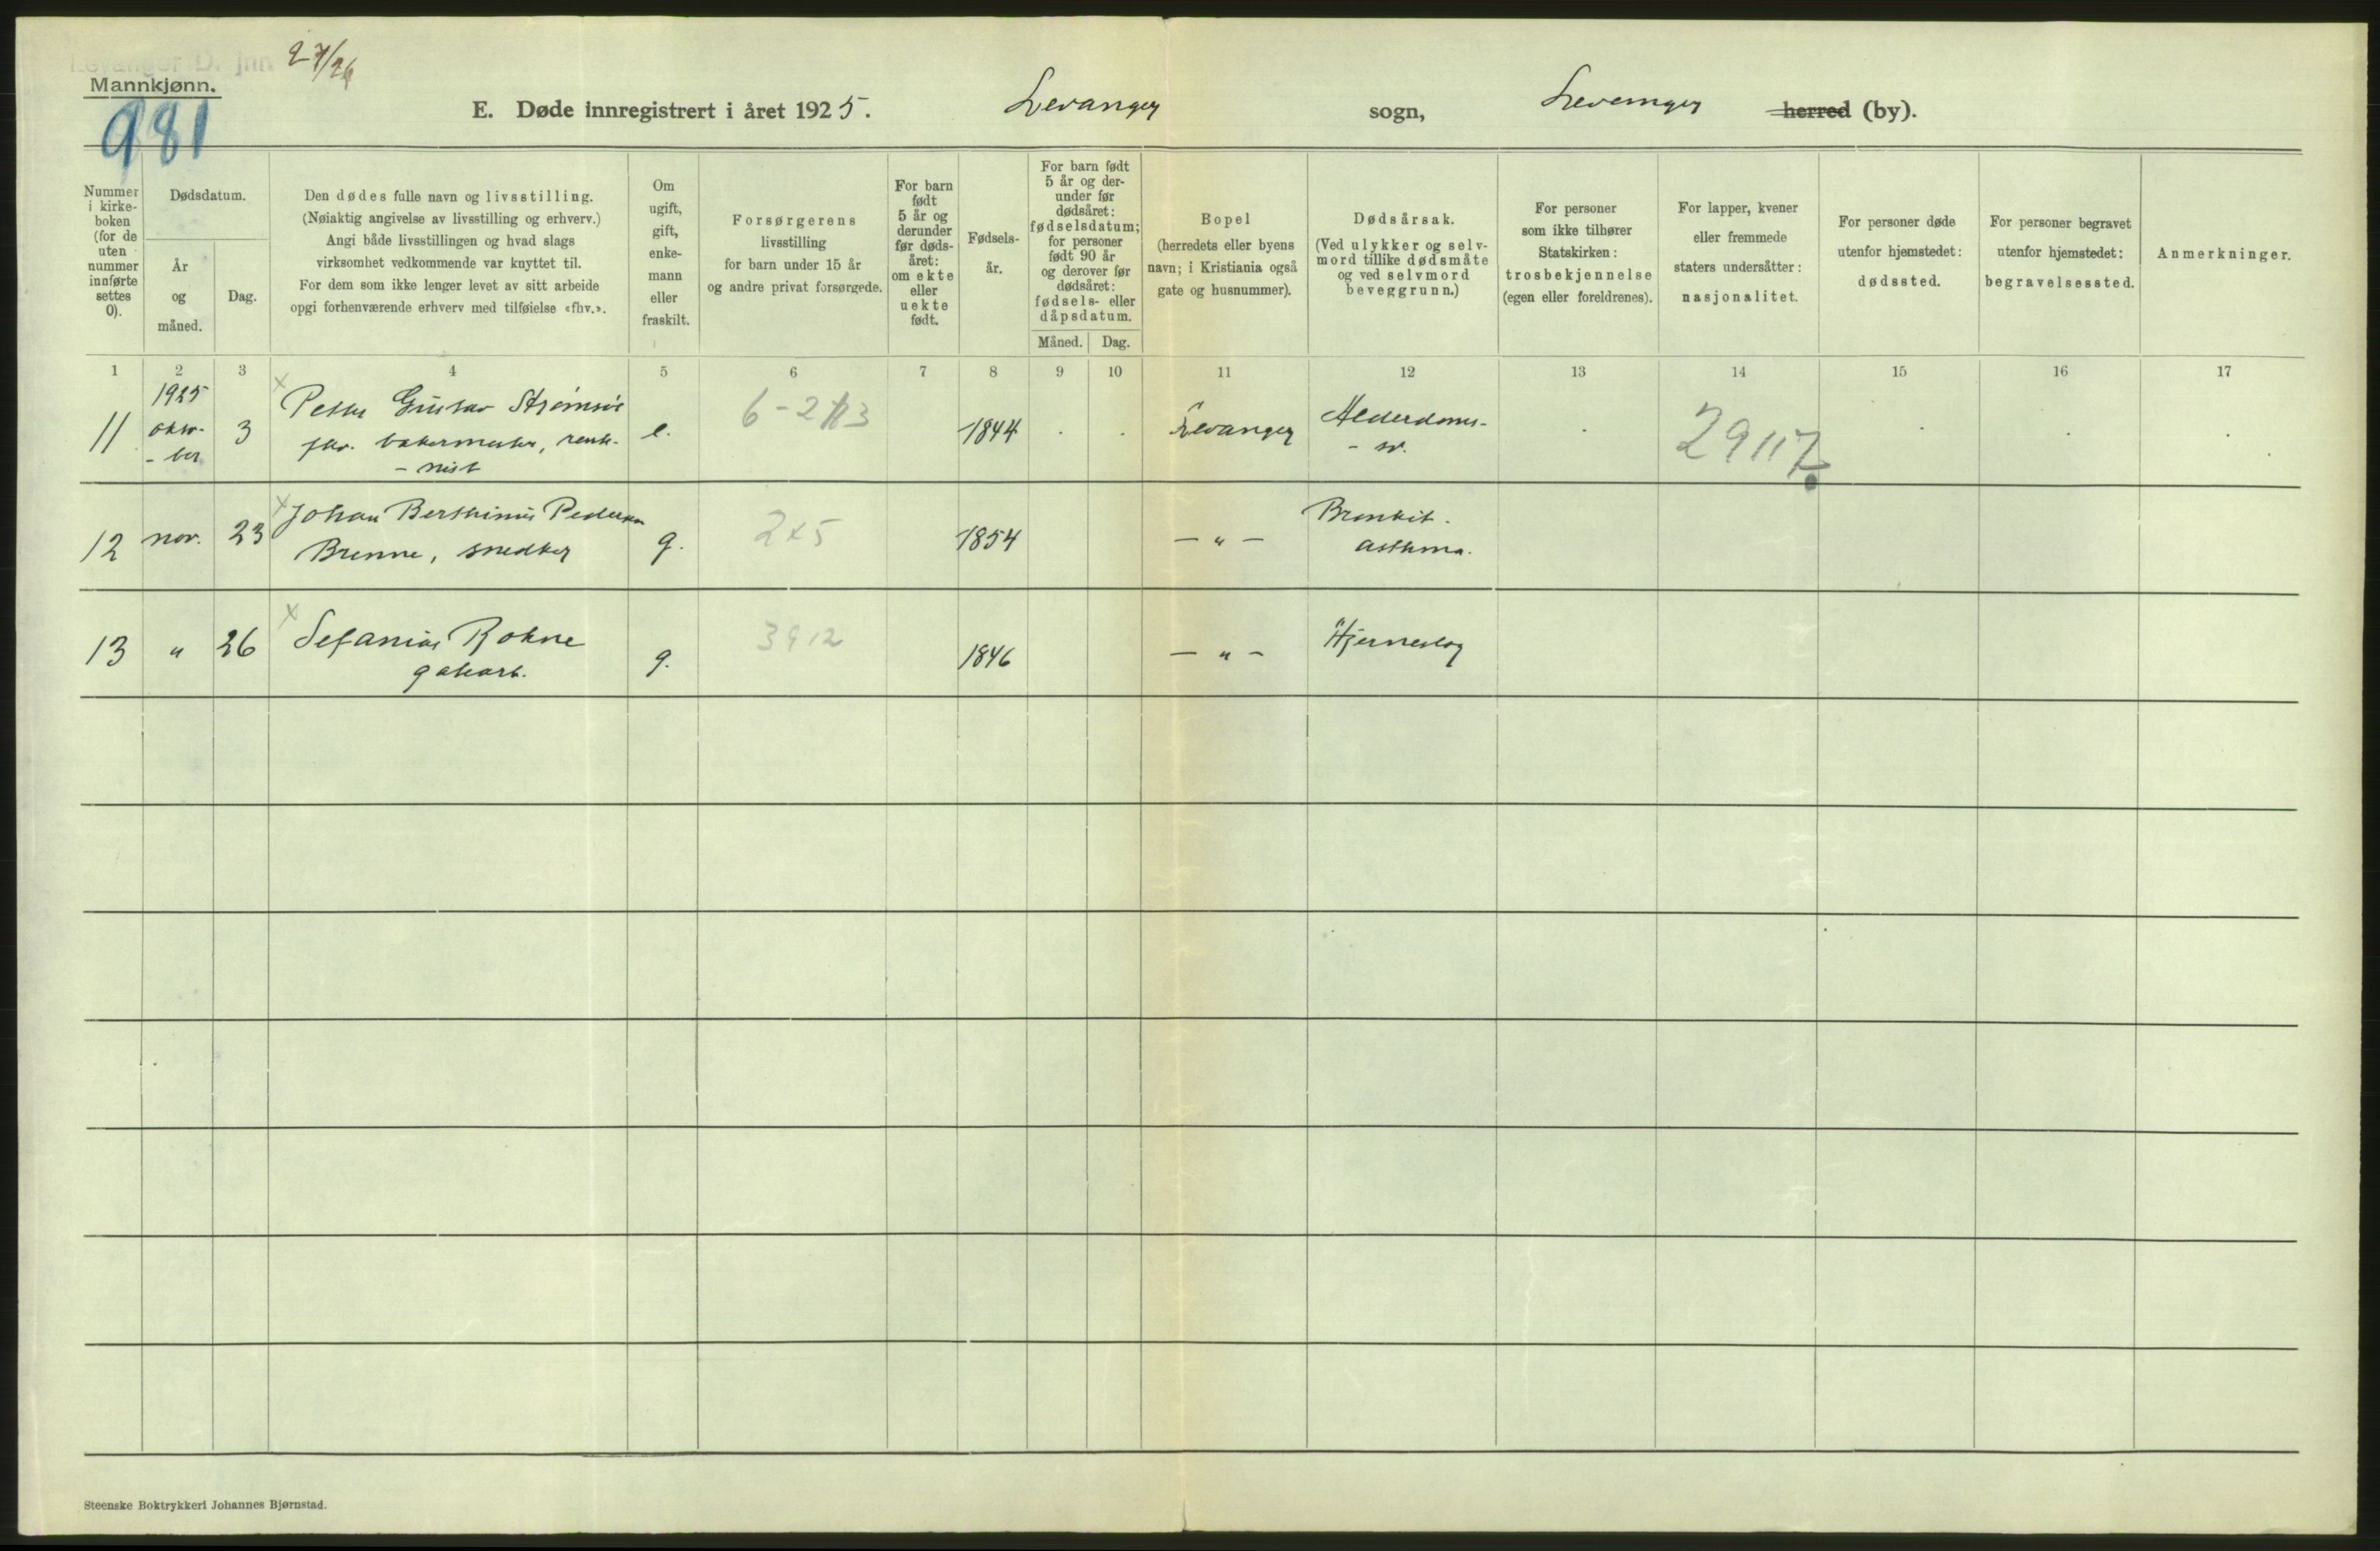 Levanger D. jnr. 27/26
Mannkjønn.
981
E. Døde innregistrert i året 1925. Levanger sogn, Levanger herred (by).
Nummer i kirke-boken (for de uten nummer innførte settes 0).
Dødsdatum.
År og måned.
Dag.
Den dødes fulle navn og livsstilling.
(Nøiaktig angivelse av livsstilling og erhverv.)
Angi både livsstillingen og hvad slags
virksomhet vedkommende var knyttet til.
For dem som ikke lenger levet av sitt arbeide
opgi forhenværende erhverv med tilføielse «fhv.».
Om ugift, gift, enke-mann eller fraskilt.
Forsørgerens
livsstilling
for barn under 15 år
og andre privat forsørgede.
For barn født 5 år og derunder før døds-året: om ekte eller uekte født.
Fødsels-år.
For barn født 5 år og der-under før dødsåret: fødselsdatum; for personer født 90 år og derover før dødsåret: fødsels- eller dåpsdatum.
Måned. Dag.
Bopel
(herredets eller byens
navn; i Kristiania også
gate og husnummer).
Dødsårsak.
(Ved ulykker og selv-
mord tillike dødsmåte
og ved selvmord
beveggrunn.)
For personer
som ikke tilhører
Statskirken:
trosbekjennelse
(egen eller foreldrenes).
For lapper, kvener
eller fremmede
staters undersåtter:
nasjonalitet.
For personer døde
utenfor hjemstedet:
dødssted.
For personer begravet
utenfor hjemstedet:
begravelsessted.
Anmerkninger.
1 2 3 4 5 6 7 8 9 10 11 12 13 14 15 16 17
1925
11 okto-
- ber 3 x Petter Gustav Strømsøe
fhv. bakermester, rent-
- nist
e. 6-2 113 1844 . . Levanger Alderdoms-
- sv. . 29117 . . .
12 nov. 23 x Johan Berthinius Pedersen
Brenne, snedker g. 2x5 1854 - " - Bronkit.
asthma.
13 " 26 x Sefanias Rokne
gatearb. g. 3912 1846 - " - Hjerneslag
Steenske Boktrykkeri Johannes Bjørnstad.